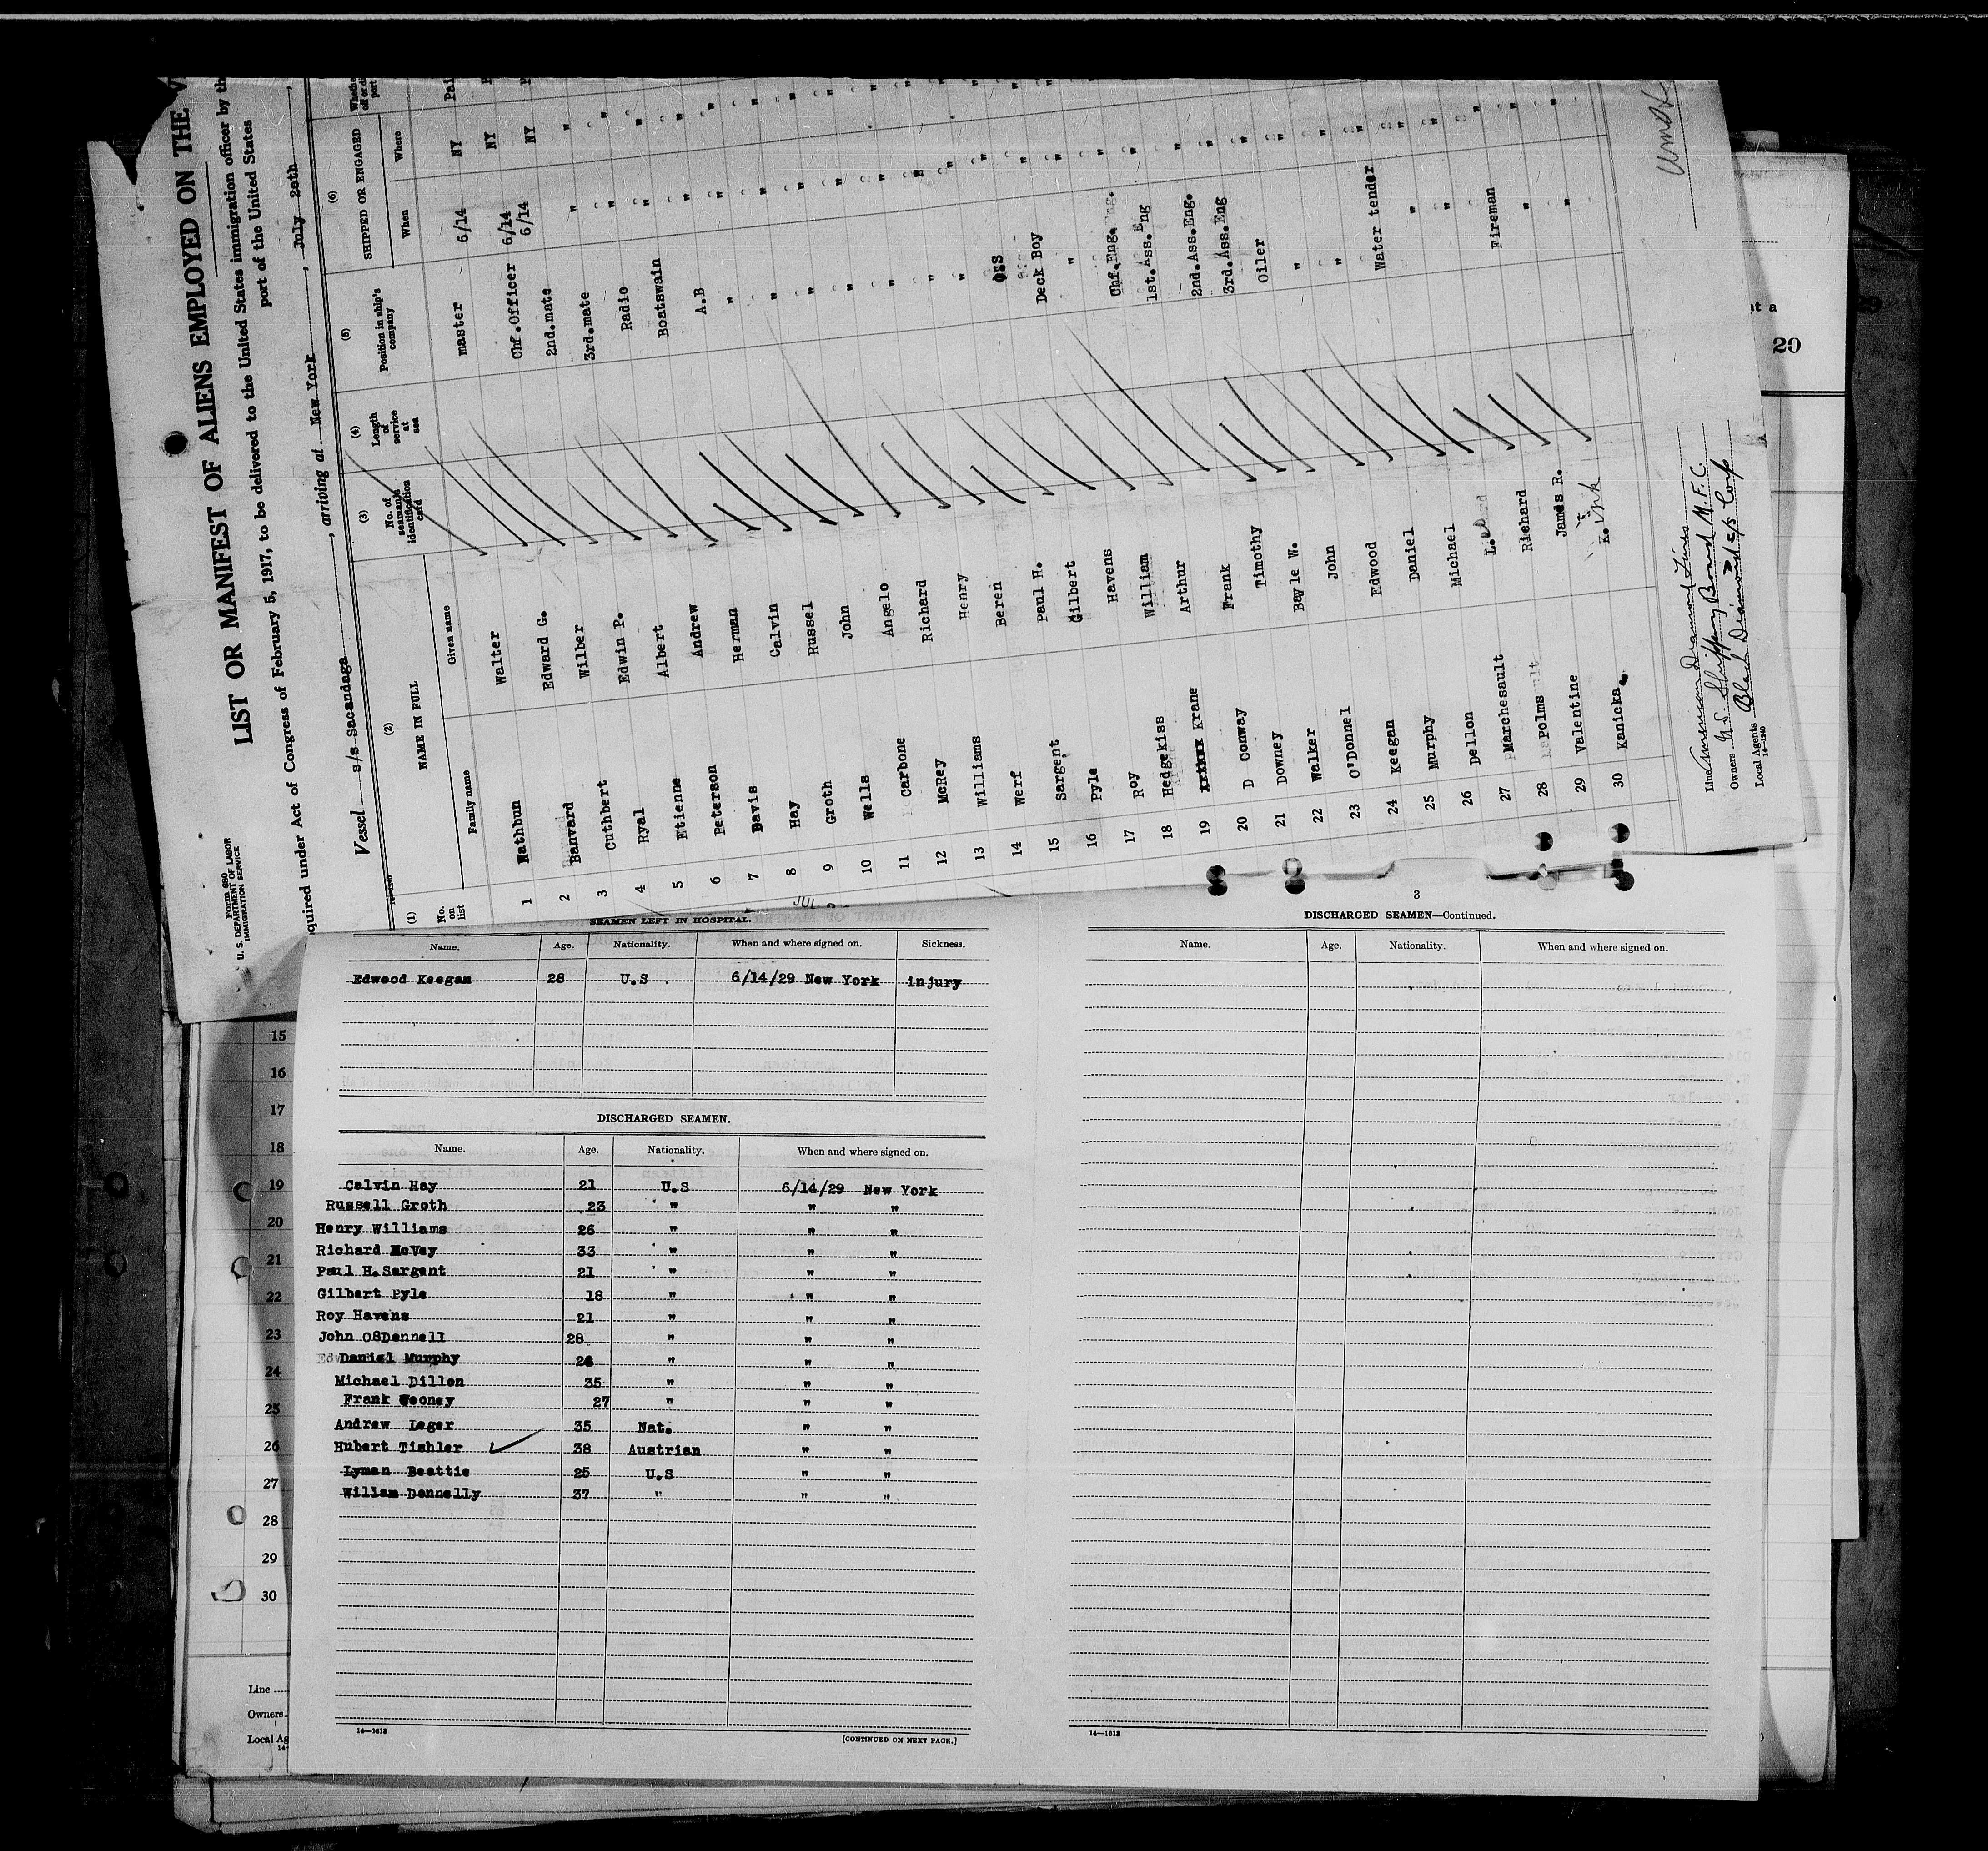 LIST OR MANIFEST OF ALIENS EMPLOYED ON THE
Form 680
U. S. DEPARTMENT OF LABOR
IMMIGRATION SERVICE
quired under Act of Congress of February 5, 1917, to be delivered to the United States immigration officer by th
port of the United States
Vessel s/s Sacandaga, arriving at New York, July 20th,
(1) (2) (3) (4) (5) (6)
No. on list NAME IN FULL No. of seaman's identification card Length of service at sea Position in ship's company SHIPPED OR ENGAGED
Family name Given name When Where
1 Nathbun Walter master 6/14 NY
2 Banvard Edward G. Chf.Officer 6/14 NY
3 Cuthbert Wilber 2nd.mate 6/14 NY
4 Ryal Edwin P. 3rd.mate " "
5 Etienne Albert Radio " "
6 Peterson Andrew Boatswain " "
7 Davis Herman A.B " "
8 Hay Calvin " " "
9 Groth Russel " " "
10 Wells John " " "
11 Carbone Angelo " " "
12 McRey Richard " " "
13 Williams Henry " " "
14 Werf Beren " " "
15 Sargent Paul H. O.S " "
16 Pyle Gilbert Deck Boy " "
17 Roy Havens " " "
18 Hedgekiss William Chf.Eng. " "
19 Krane Arthur 1st.Ass.Eng " "
20 D Conway Frank 2nd.Ass.Eng. " "
21 Downey Timothy 3rd.Ass.Eng " "
22 Walker Bayle W. Oiler " "
23 O'Donnel John " " "
24 Keegan Edwood " " "
25 Murphy Daniel Water tender " "
26 Dellon Michael " " "
27 Marchesault L. " " "
28 Polms Richard Fireman " "
29 Valentine James R. " " "
30 Kanicka K. " " "
Line American Diamond Lines
Owners U.S Shipping Board M.F.C.
Local Agents Black Diamond s/s Corp
14-1240
SEAMEN LEFT IN HOSPITAL.
Name. Age. Nationality. When and where signed on. Sickness.
Edwood Keegan 28 U.S 6/14/29 New York injury
DISCHARGED SEAMEN.
Name. Age. Nationality. When and where signed on.
Calvin Hay 21 U.S 6/14/29 New York
Russell Groth 23 " " "
Henry Williams 26 " " "
Richard McVey 33 " " "
Paul H.Sargent 21 " " "
Gilbert Pyle 18 " " "
Roy Havens 21 " " "
John O8Donnell 28 " " "
Daniel Murphy 28 " " "
Michael Dillon 35 " " "
Frank Wooney 27 " " "
Andrew Leger 35 Nat. " "
Hubert Tishler 38 Austrian " "
Lyman Beattie 25 U.S " "
William Donnelly 37 " " "
14—1613
[CONTINUED ON NEXT PAGE.]
3
DISCHARGED SEAMEN—Continued.
Name. Age. Nationality. When and where signed on.
14—1613
15
16
17
18
19
20
21
22
23
24
25
26
27
28
29
30
Line
Owners
Local Ag
20